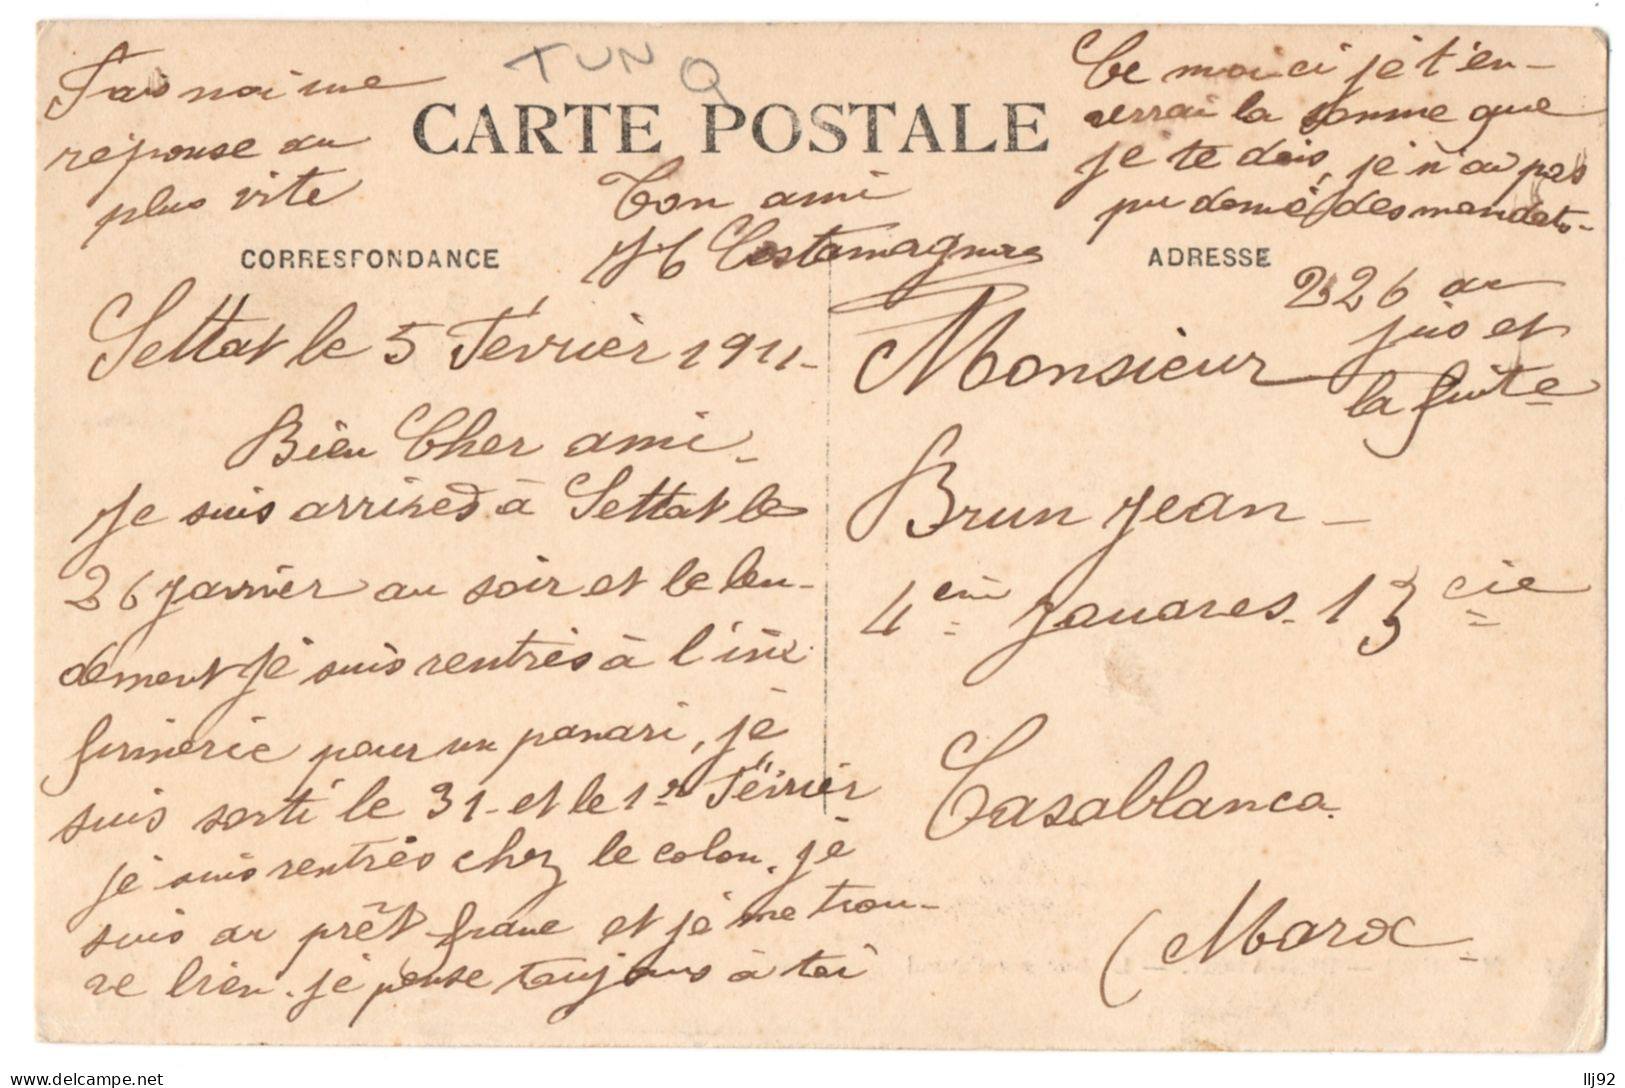 TUN
CARTE POSTALE
CORRESPONDANCE
Settat le 5 Février 1911-
Bien Cher ami -
Je suis arrives à Settat le
26 Janvier au soir et le len-
dement Je suis rentrès à l'in
firmerie pour un panari, je
suis sorti le 31- et le 1er Février
je suis rentrès chez le colon, je
suis au prêt franc et je me trou-
ve bien. je pense toujours à toi
Fais moi une
réponse au
plus vite
Ton ami
Costamagna
Ce moi ci je t'en-
verrai la somme que
je te dois, je n'ai pas
pu des mandats-
ADRESSE
226 au
jus et
la fuite
Monsieur
Brun Jean -
4em Zouaves. 13 cie
Casablanca.
(Maroc -
llj92